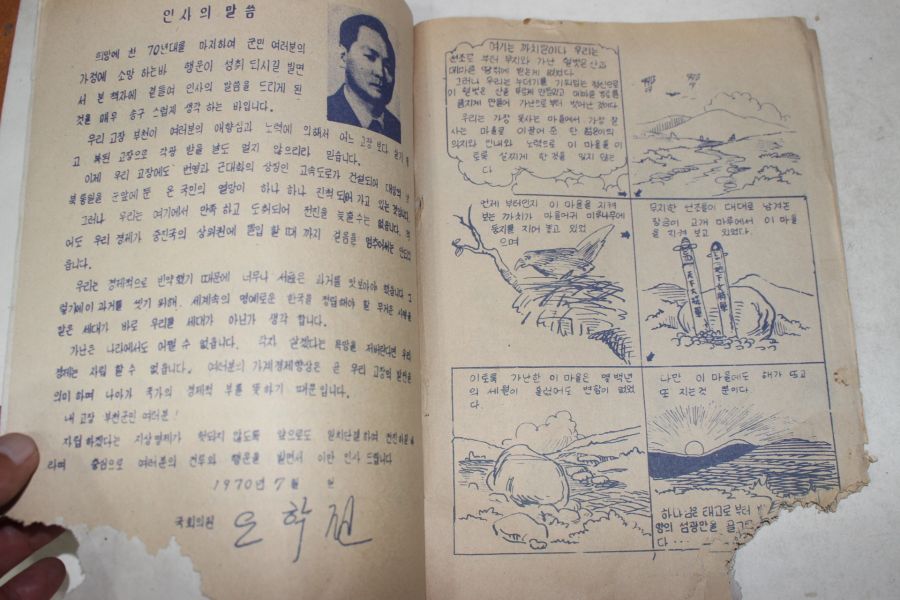 인사의 말씀
희망에 찬 70년대를 마지하여 군민 여러분의
가정에 소망 하는바 행운이 성취 되시길 빌면
서 본 책자에 곁들여 인사의 말씀을 드리게 된
것을 매우 송구 스럽게 생각 하는 바입니다.
우리 고장 부천이 여러분의 애향심과 노력에 의해서 어느 고장 보다 살기 좋
고 복된 고장으로 각광 받을 날도 멀지 않으리라 믿습니다.
이제 우리 고장에도 번영과 근대화의 상징인 고속도로가 건설되어
북통일을 눈앞에 둔 온 국민의 열망이 하나 하나 진척 되어 가고 있는 것입니다.
그러나 우리는 여기에서 만족 하고 도취되어 전진을 늦출수는 없습니다.
어도 우리 경제가 중진국의 상위권에 돌입 할 때 까지 걸음을 멈추어서는 안되겠
습니다.
우리는 경제적으로 빈약했기 때문에 너무나 서글픈 과거를 맛보아야 했습니다
과거를 씻기 위해. 세계속의 명예로운 한국을 정립해야 할 무거운 사명을
맡은 세대가 바로 우리들 세대가 아닌가 생각 합니다.
가난은 나라에서도 어쩔 수 없습니다. 각자 살겠다는 욕망을 저버린다면 우리
경제는 자립 할 수 없습니다. 여러분의 가계경제향상은 곧 우리 고장의 발전을
의미 하며 나아가 국가의 경제적 부를 뜻하기 때문입니다.
내 고장 부천군민 여러분!
자립 하겠다는 지상명제가 헛되지 않도록 앞으로도 일치단결 하여 전진하시
라며 충심으로 여러분의 건투와 행운을 빌면서 이만 인사 드립니다
1970년 7월 일
국회의원 오 학 진
여기는 까치골이나 우리는
선조로 부터 무지와 가난 헐벗은 산과
메마른 땅위에 받은게 없었다
그러나 우리는 부모기를 기피않는 정신으로
이 헐벗은 산을 푸르게 만들었고 메마른 땅을
름지게 만들어 가난으로부터 벗어난 것이다
우리는 가장 못사는 마을에서 가장 잘
사는 마을로 이끌어 준 한 젊은이의
의지와 인내와 노력으로 이 마을을 이
토록 살찌게 한 것을 잊지 않는
다
언제 부터인지 이 마을을 지켜
보는 까치가 마을어귀 미루나무에
둥지를 지어 놓고 있었
으며
무지한 선조들이 대대로 남겨온
장승이 고개 마루에서 이 마을
을 지켜 보고 있었다.
天下大將軍
이토록 가난한 이 마을은 몇 백년
의 세월이 흘렀어도 변함이 없었
다.
나만 이 마을에도 해가 뜨고
또 지는것 뿐이다.
하나님은 태고로 부터
양의 섬광만을
다 ....